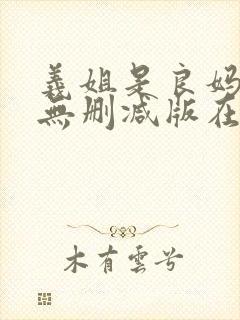 義姐是良妈
無删减版在
木有雲兮